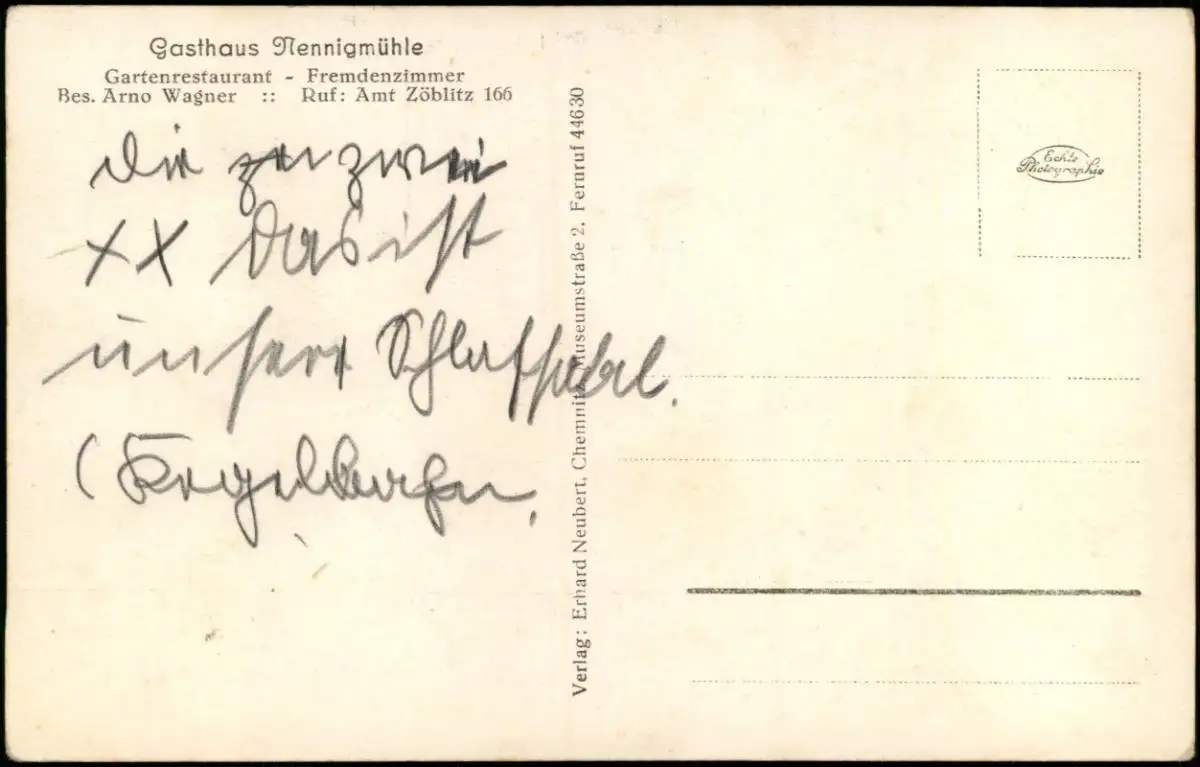 Gasthaus Nennigmühle
Gartenrestaurant - Fremdenzimmer
Bes. Arno Wagner :: Ruf: Amt Zöblitz 166
die zwei
XX Das ist
unser
Verlag: Erhard Neubert, Chemnitz, Museumstraße 2. Fernruf 44630
Echte
Photographie